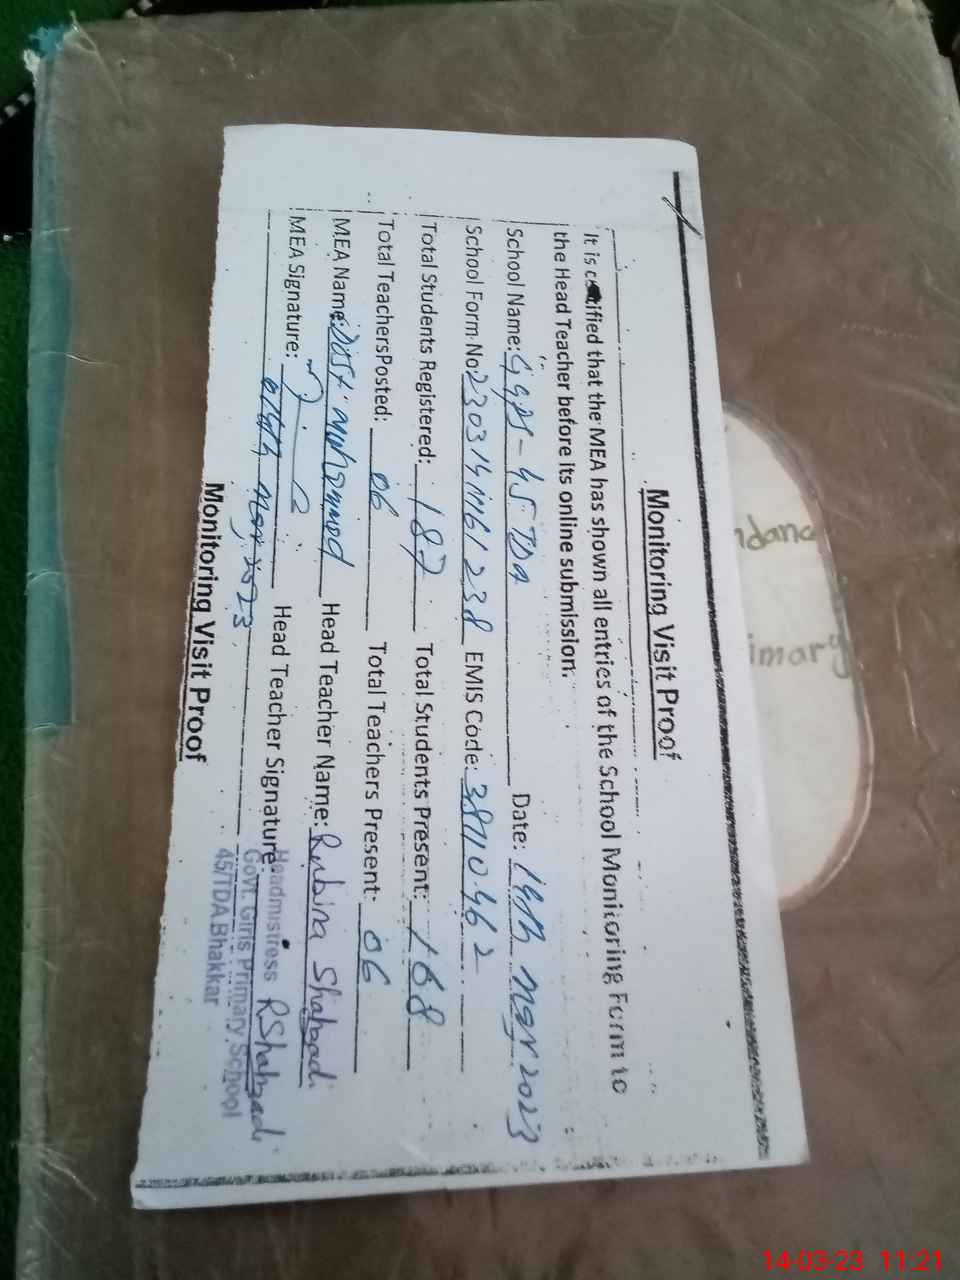 Monitoring Visit Proof
It is certified that the MEA has shown all entries of the School Monitoring Form to
the Head Teacher before its online submission.
School Name: GGPS-45 TDA Date: 14th Mar 2023
School Form No: 23031411161238 EMIS Code: 38110462
Total Students Registered: 187 Total Students Present: 168
Total TeachersPosted: 06 Total Teachers Present: 06
MEA Name: Dost Muhammad Head Teacher Name: Rubina Shahzadi
MEA Signature: Head Teacher Signature: RShahzadi
14th Mar 2023
Headmistress
Govt. Girls Primary School
45/TDA Bhakkar
Monitoring Visit Proof
imary
14-03-23 11:21